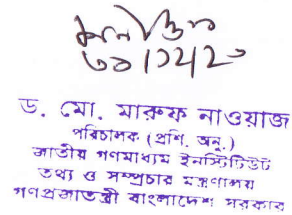 ড. মো. মারুফ নাওয়াজ
পরিচালক (প্রশি. অনু.)
জাতীয় গণমাধ্যম ইনস্টিটিউট
তথ্য ও সম্প্রচার মন্ত্রণালয়
গণপ্রজাতন্ত্রী বাংলাদেশ সরকার